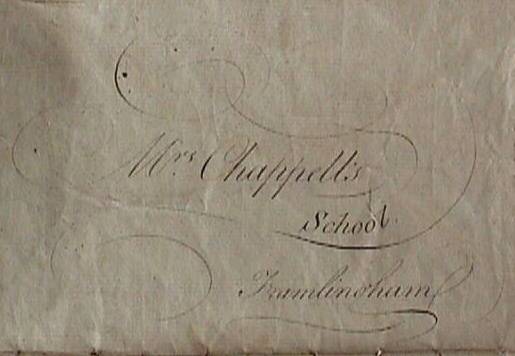 Mrs Chappell's
School.
Framlingham